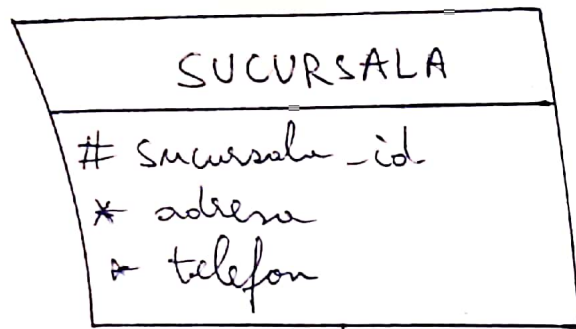 SUCURSALA
# sucursala_id
* adresa
* telefon